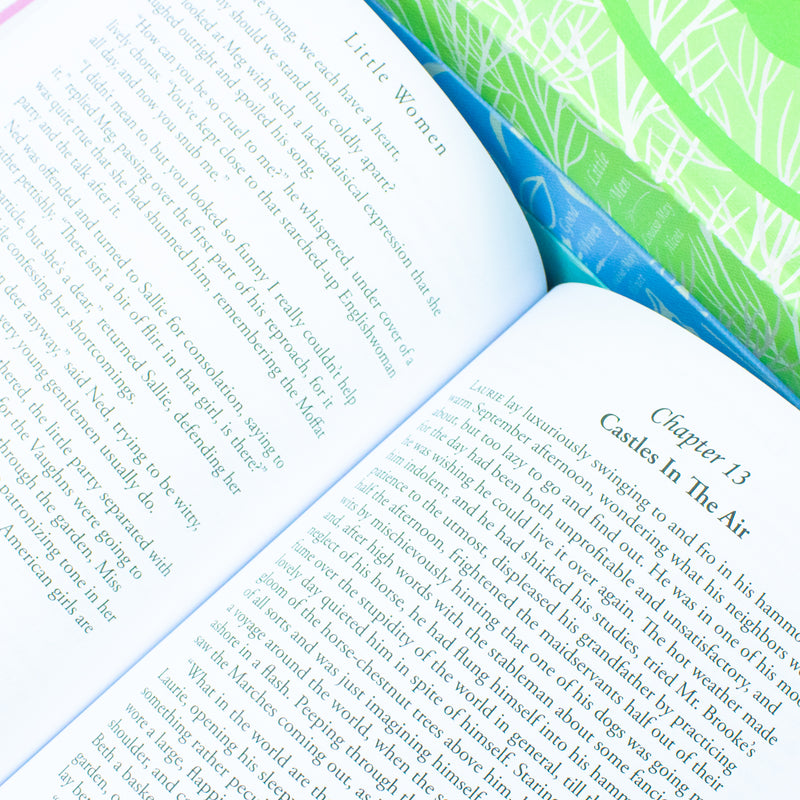 Little Women
young, we each have a heart,
should we stand thus coldly apart?
looked at Meg with such a lackadaisical expression that she
outright and spoiled his song.
“How can you be so cruel to me?” he whispered, under cover of a
lively chorus. “You’ve kept close to that starched-up Englishwoman
all day and now you snub me.”
“I didn’t mean to, but you looked so funny I really couldn’t help
it,” replied Meg, passing over the first part of his reproach, for it
was quite true that she had shunned him, remembering the Moffat
party and the talk after it.
Ned was offended and turned to Sallie for consolation, saying to
pettishly. “There isn’t a bit of flirt in that girl, is there?”
but she’s a dear,” returned Sallie, defending her
confessing her shortcomings.
deer anyway,” said Ned, trying to be witty,
very young gentlemen usually do.
the little party separated with
for the Vaughns were going to
through the garden, Miss
patronizing tone in her
American girls are
Chapter 13
Castles In The Air
LAURIE lay luxuriously swinging to and fro in his
warm September afternoon, wondering what his neighbors
about, but too lazy to go and find out. He was in one of his
for the day had been both unprofitable and unsatisfactory, and
he was wishing he could live it over again. The hot weather made
him indolent, and he had shirked his studies, tried Mr. Brooke’s
patience to the utmost, displeased his grandfather by practicing
half the afternoon, frightened the maidservants half out of their
wits by mischievously hinting that one of his dogs was going
and, after high words with the stableman about some fancied
neglect of his horse, he had flung himself into his
fume over the stupidity of the world in general, till
lovely day quieted him in spite of himself. Staring
gloom of the horse-chestnut trees above him,
of all sorts and was just imagining himself
a voyage around the world, when the
ashore in a flash. Peeping through the
saw the Marches coming out, as
“What in the world are
Laurie, opening his
something rather
wore a large, flapping
shoulder, and
Beth a
garden,
lay
Little
Men
Good
Wives